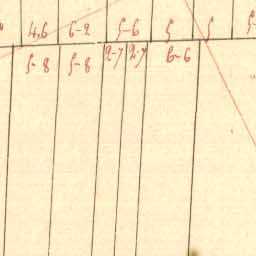 4,6 6-2 5-6 5 5
2-7 2-7 6-6
5-8 5-8